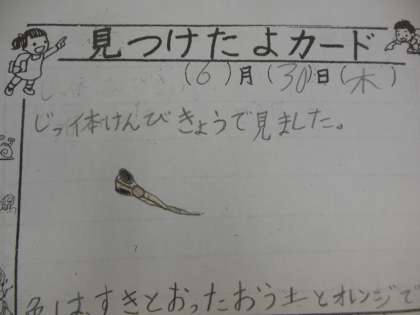 見つけたよカード
(6)月(30)日(木)
じっ体けんびきょうで見ました。
色は、すきとおったおう土とオレンジで